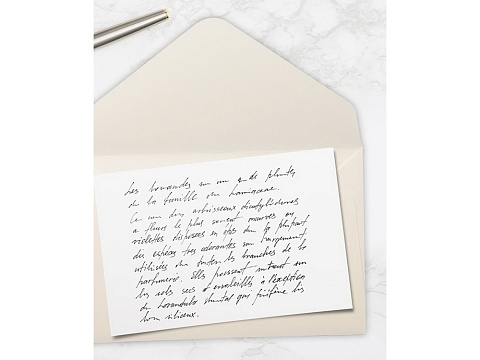 Les lavandes sont un genre de plantes
de la famille des Lamiaceae.
Ce sont des arbrisseaux dicotylédones
à fleurs le plus souvent mauves ou
violettes disposées en épis dont la plupart
des espèces très odorantes sont largement
utilisées dans toutes les branches de la
parfumerie. Elles poussent surtout sur
les sols secs et ensoleillés à l'exception
de Lavandula stoechas qui préfère les
siliceux.